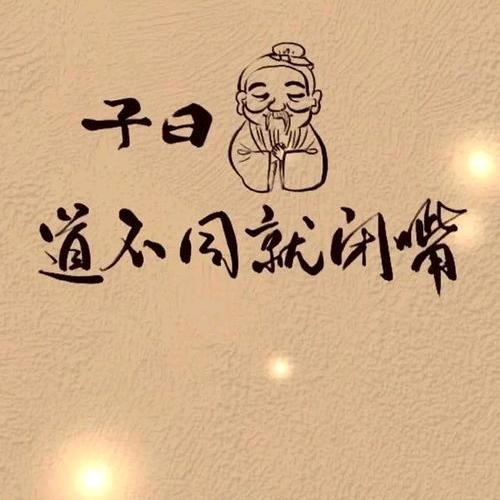 子曰
道不同就闭嘴